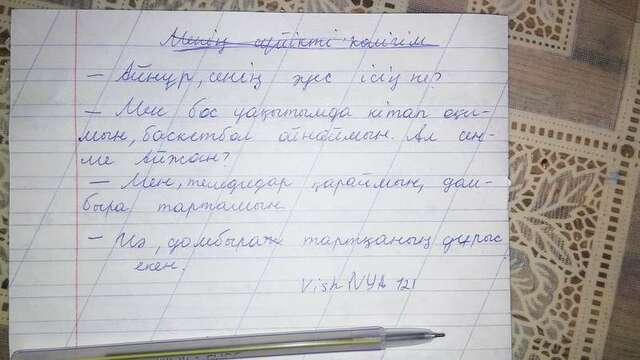 Менің сүйікті көлігім
— Айнұр, сенің ісің не?
— Мен бос уақытымда кітап оқи-
мын, баскетбол ойнаймын. Ал сен-
ше Айжан?
— Мен, теледидар қараймын, дом-
быра тартамын
— Иә, домбыра тартқаның дұрыс
екен.